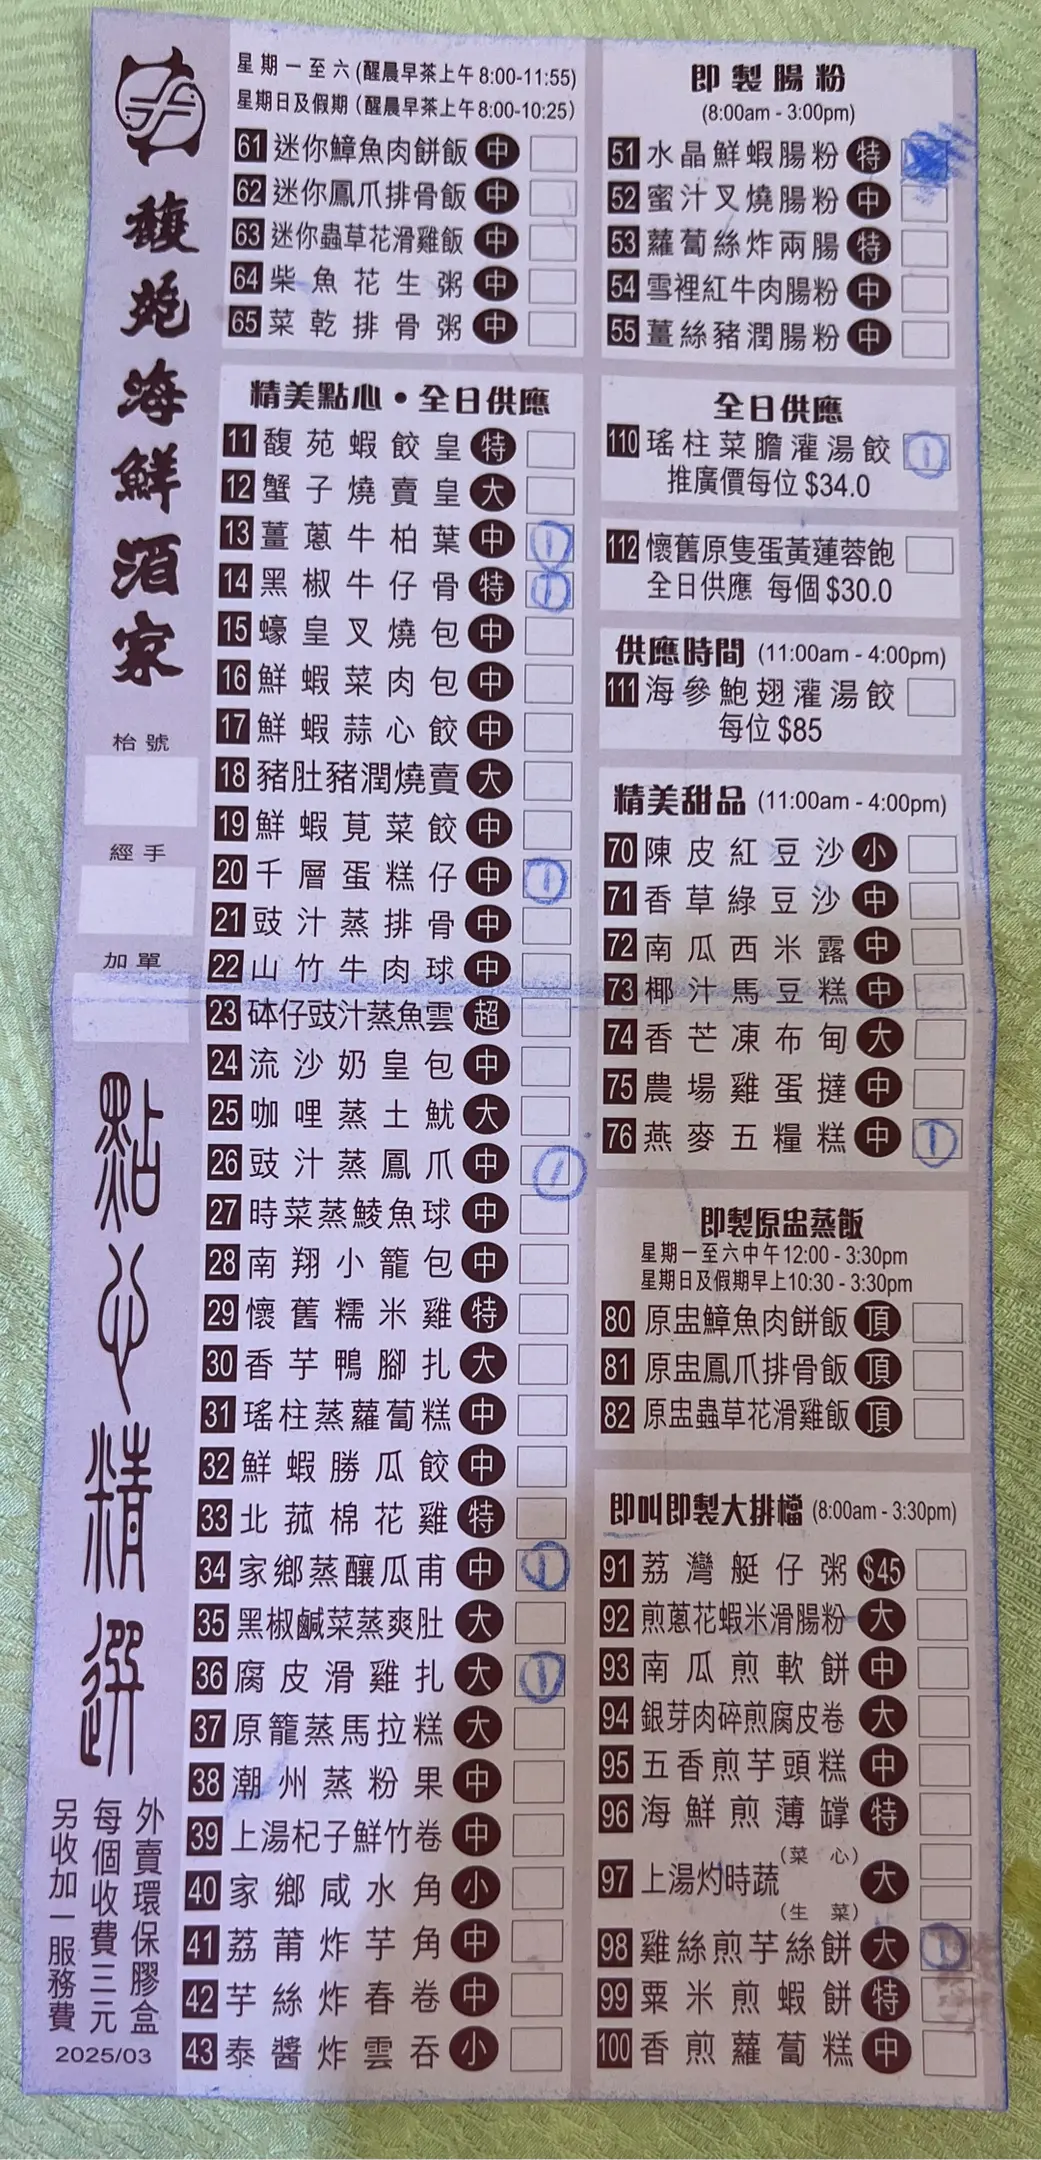 馥苑海鮮酒家
枱號
經手
加單
點心精選
外賣環保膠盒
每個收費三元
另收加一服務費
2025/03
星期一至六(醒晨早茶上午8:00-11:55)
星期日及假期(醒晨早茶上午8:00-10:25)
61 迷你鱆魚肉餅飯 中
62 迷你鳳爪排骨飯 中
63 迷你蟲草花滑雞飯 中
64 柴魚花生粥 中
65 菜乾排骨粥 中
精美點心・全日供應
11 馥苑蝦餃皇 特
12 蟹子燒賣皇 大
13 薑蔥牛柏葉 中 1
14 黑椒牛仔骨 特 1
15 蠔皇叉燒包 中
16 鮮蝦菜肉包 中
17 鮮蝦蒜心餃 中
18 豬肚豬潤燒賣 大
19 鮮蝦莧菜餃 中
20 千層蛋糕仔 中 1
21 豉汁蒸排骨 中
22 山竹牛肉球 中
23 砵仔豉汁蒸魚雲 超
24 流沙奶皇包 中
25 咖哩蒸土魷 大
26 豉汁蒸鳳爪 中 1
27 時菜蒸鯪魚球 中
28 南翔小籠包 中
29 懷舊糯米雞 特
30 香芋鴨腳扎 大
31 瑤柱蒸蘿蔔糕 中
32 鮮蝦勝瓜餃 中
33 北菰棉花雞 特
34 家鄉蒸釀瓜甫 中 1
35 黑椒鹹菜蒸爽肚 大
36 腐皮滑雞扎 大 1
37 原籠蒸馬拉糕 大
38 潮州蒸粉果 中
39 上湯杞子鮮竹卷 中
40 家鄉咸水角 小
41 荔莆炸芋角 中
42 芋絲炸春卷 中
43 泰醬炸雲吞 小
即製腸粉
(8:00am - 3:00pm)
51 水晶鮮蝦腸粉 特
52 蜜汁叉燒腸粉 中
53 蘿蔔絲炸兩腸 特
54 雪裡紅牛肉腸粉 中
55 薑絲豬潤腸粉 中
全日供應
110 瑤柱菜膽灌湯餃 1
推廣價每位 $34.0
112 懷舊原隻蛋黃蓮蓉飽
全日供應 每個 $30.0
供應時間 (11:00am - 4:00pm)
111 海參鮑翅灌湯餃
每位 $85
精美甜品 (11:00am - 4:00pm)
70 陳皮紅豆沙 小
71 香草綠豆沙 中
72 南瓜西米露 中
73 椰汁馬豆糕 中
74 香芒凍布甸 大
75 農場雞蛋撻 中
76 燕麥五糧糕 中 1
即製原盅蒸飯
星期一至六中午12:00 - 3:30pm
星期日及假期早上10:30 - 3:30pm
80 原盅鱆魚肉餅飯 頂
81 原盅鳳爪排骨飯 頂
82 原盅蟲草花滑雞飯 頂
即叫即製大排檔 (8:00am - 3:30pm)
91 荔灣艇仔粥 $45
92 煎蔥花蝦米滑腸粉 大
93 南瓜煎軟餅 中
94 銀芽肉碎煎腐皮卷 大
95 五香煎芋頭糕 中
96 海鮮煎薄罉 特
97 上湯灼時蔬 (菜心) (生菜) 大
98 雞絲煎芋絲餅 大 1
99 粟米煎蝦餅 特
100 香煎蘿蔔糕 中